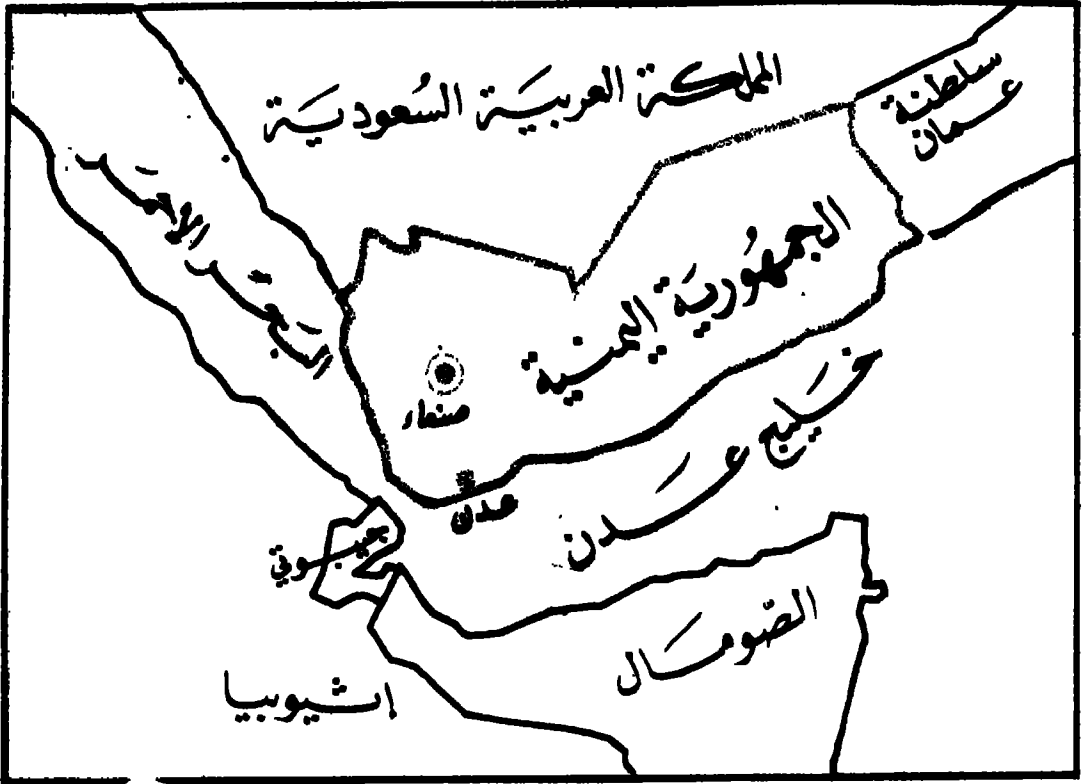 المملكة العربية السُعودية
سلطنة
عمان
البحر الأحمر
الجمهُورية اليمنية
صنعاء
عدن
خليج عدن
جيبوتي
الصّومال
إثيوبيا